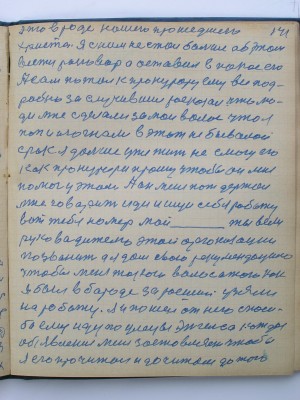 это вроде нашего прошедшего 141
христа Я с ним не стал больше об этом
вести разговор а оставил в парасего
А сам пошол к прокурору ему все под-
робно за случивши расказал что лю-
ди мне сделали за мои волос что я
поп и согнали в этот не бывалой
срак я дольше уже жить не смогу его
как прокурора прошу чтобы он мне
помог у этом. Он меня поддержал
мне говарит иди и ищи себе работу
вот тебе номер мой ты всем
руководителю этой организации
позвонит я дам свою рекомендацию
чтобы меня такого волосатого как
я был в бароде заросший узяли
на работу. Я и понел от него спаси-
бо ему иду по улецы Энгельса каждое
объявление меня заставляет чтобы
я его прочитал и дочитал до того